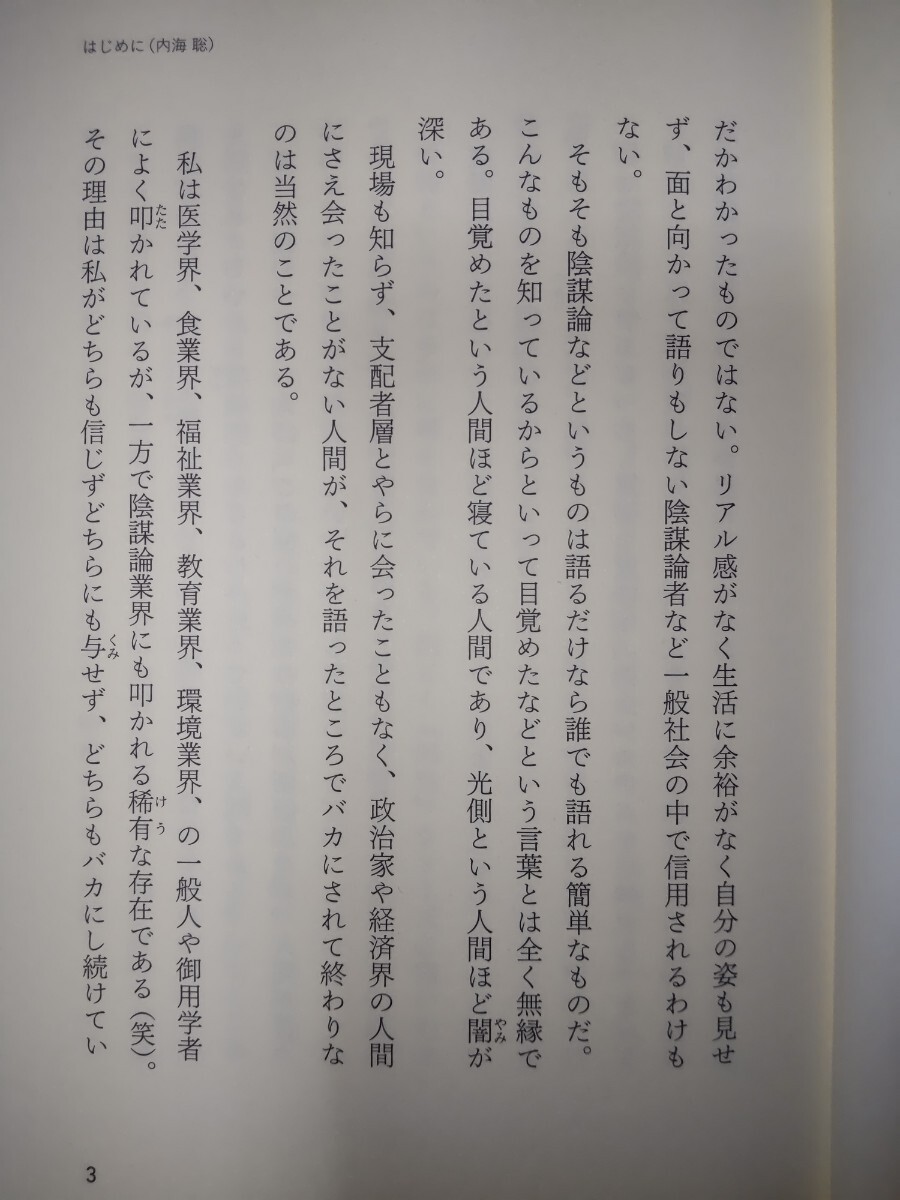 はじめに（内海 聡）
だかわかったものではない。リアル感がなく生活に余裕がなく自分の姿も見せ
ず、面と向かって語りもしない陰謀論者など一般社会の中で信用されるわけも
ない。
そもそも陰謀論などというものは語るだけなら誰でも語れる簡単なものだ。
こんなものを知っているからといって目覚めたなどという言葉とは全く無縁で
ある。目覚めたという人間ほど寝ている人間であり、光側という人間ほど闇が
やみ
深い。
現場も知らず、支配者層とやらに会ったこともなく、政治家や経済界の人間
にさえ会ったことがない人間が、それを語ったところでバカにされて終わりな
のは当然のことである。
私は医学界、食業界、福祉業界、教育業界、環境業界、の一般人や御用学者
によく叩かれているが、一方で陰謀論業界にも叩かれる稀有な存在である（笑）。
たた
けう
その理由は私がどちらも信じずどちらにも与せず、どちらもバカにし続けてい
くみ
3